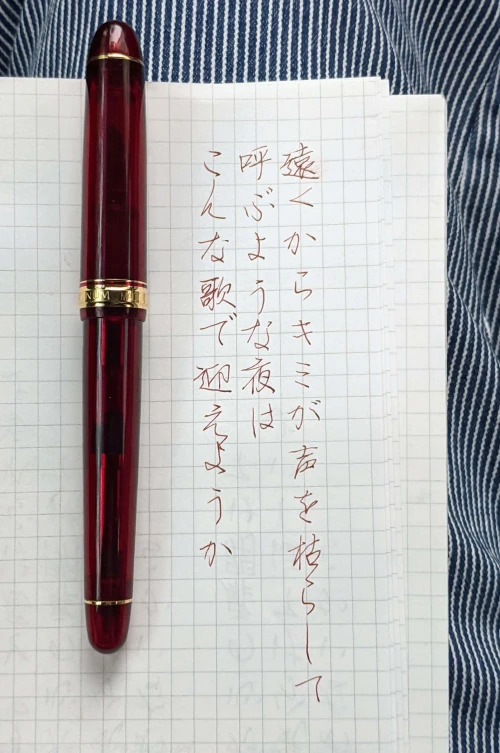 遠くからキミが声を枯らして
呼ぶような夜は
こんな歌で迎えようか